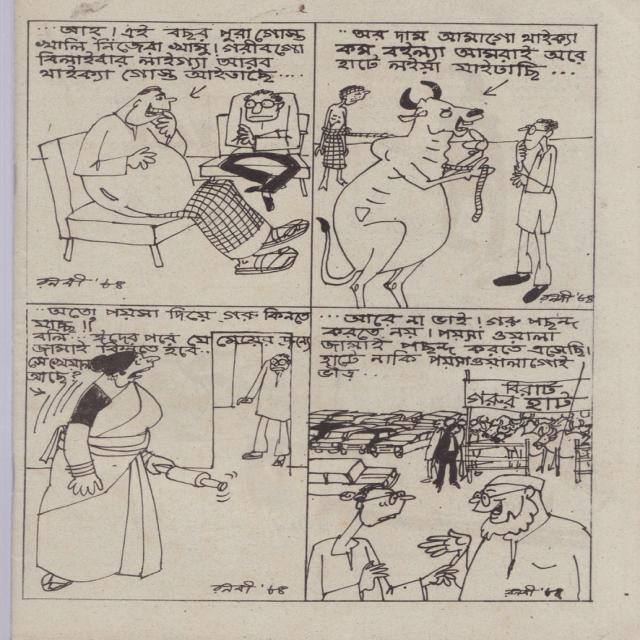 ...আহ! এই বছর পুরা গোস্ত
খালি নিজেরা খামু! গরীবগো
বিলাইবার লাইগ্যা আরব
থাইক্যা গোস্ত আইতাছে...
রনবী '৮৪
"অর দাম আমাগো থাইক্যা
কম বইল্যা আমরাই অরে
হাটে লইয়া যাইতাছি ...
রনবী '৮৪
...অতো পয়সা দিয়ে গরু কিনতে
যাচ্ছ!!
বলি.. ঈদের পরে যে মেয়ের জন্যে
জামাই কিনতে হবে..
সে খেয়াল
আছে?
রনবী '৮৪
...আরে না ভাই! গরু পছন্দ
করতে নয়! পয়সা ওয়ালা
জামাই পছন্দ করতে এসেছি।
হাটে নাকি পয়সাওয়ালাগোই
ভীড়...
বিরাট
গরুর হাট
রনবী '৮৪